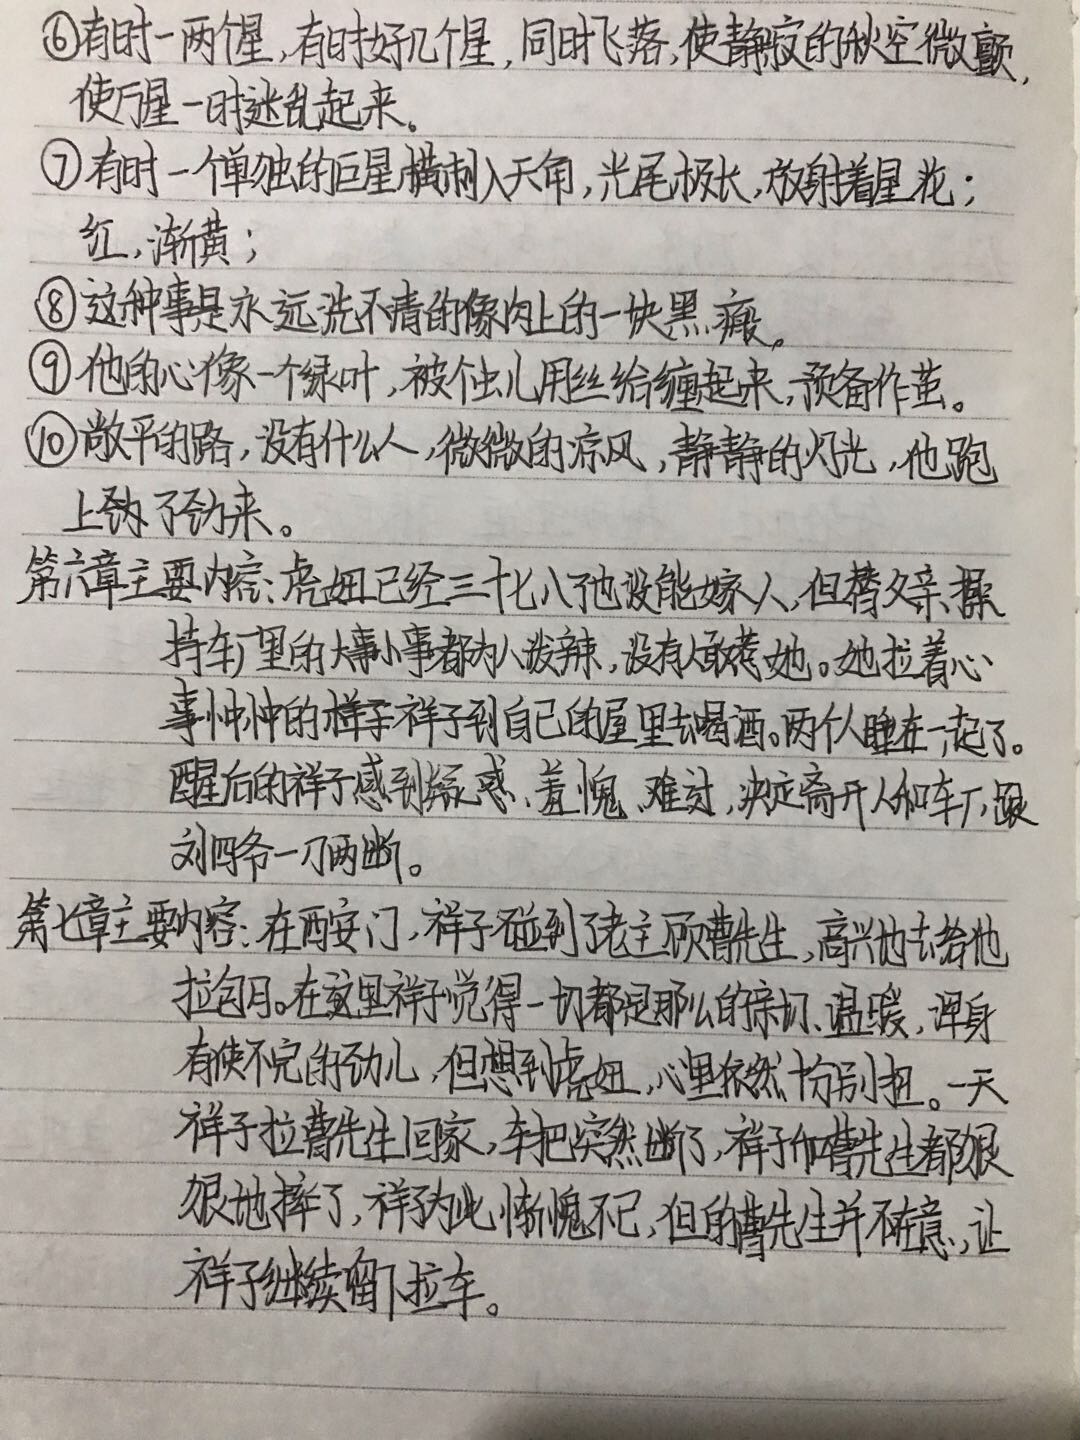 ⑥有时一两个星,有时好几个星,同时飞落,使静寂的秋空微颤,
使万星一时迷乱起来。
⑦有时一个单独的巨星横刺入天角,光尾极长,放射着星花;
红,渐黄;
⑧这种事是永远洗不清的像肉上的一块黑瘢。
⑨他的心像一个绿叶,被个虫儿用丝给缠起来,预备作茧。
⑩敞平的路,没有什么人,微微的凉风,静静的灯光,他跑
上劲了来。
第六章主要内容:虎妞已经三十七八了也没能嫁人,但替父亲操
持车厂里的大事小事都为人泼辣,没有人敢惹她。她拉着心
事忡忡的祥子到自己的屋里去喝酒。两个人睡在一起了。
醒后的祥子感到疑惑、羞愧、难过,决定离开人和车厂,跟
刘四爷一刀两断。
第七章主要内容:在西安门,祥子碰到了老主顾曹先生,高兴地去给他
拉包月。在这里祥子觉得一切都是那么的亲切、温暖,浑身
有使不完的劲儿,但想到虎妞,心里依然十分别扭。一天
祥子拉曹先生回家,车把突然断了,祥子和曹先生都狠
狠地摔了,祥子为此惭愧不已,但的曹先生并不在意,让
祥子继续留下拉车。